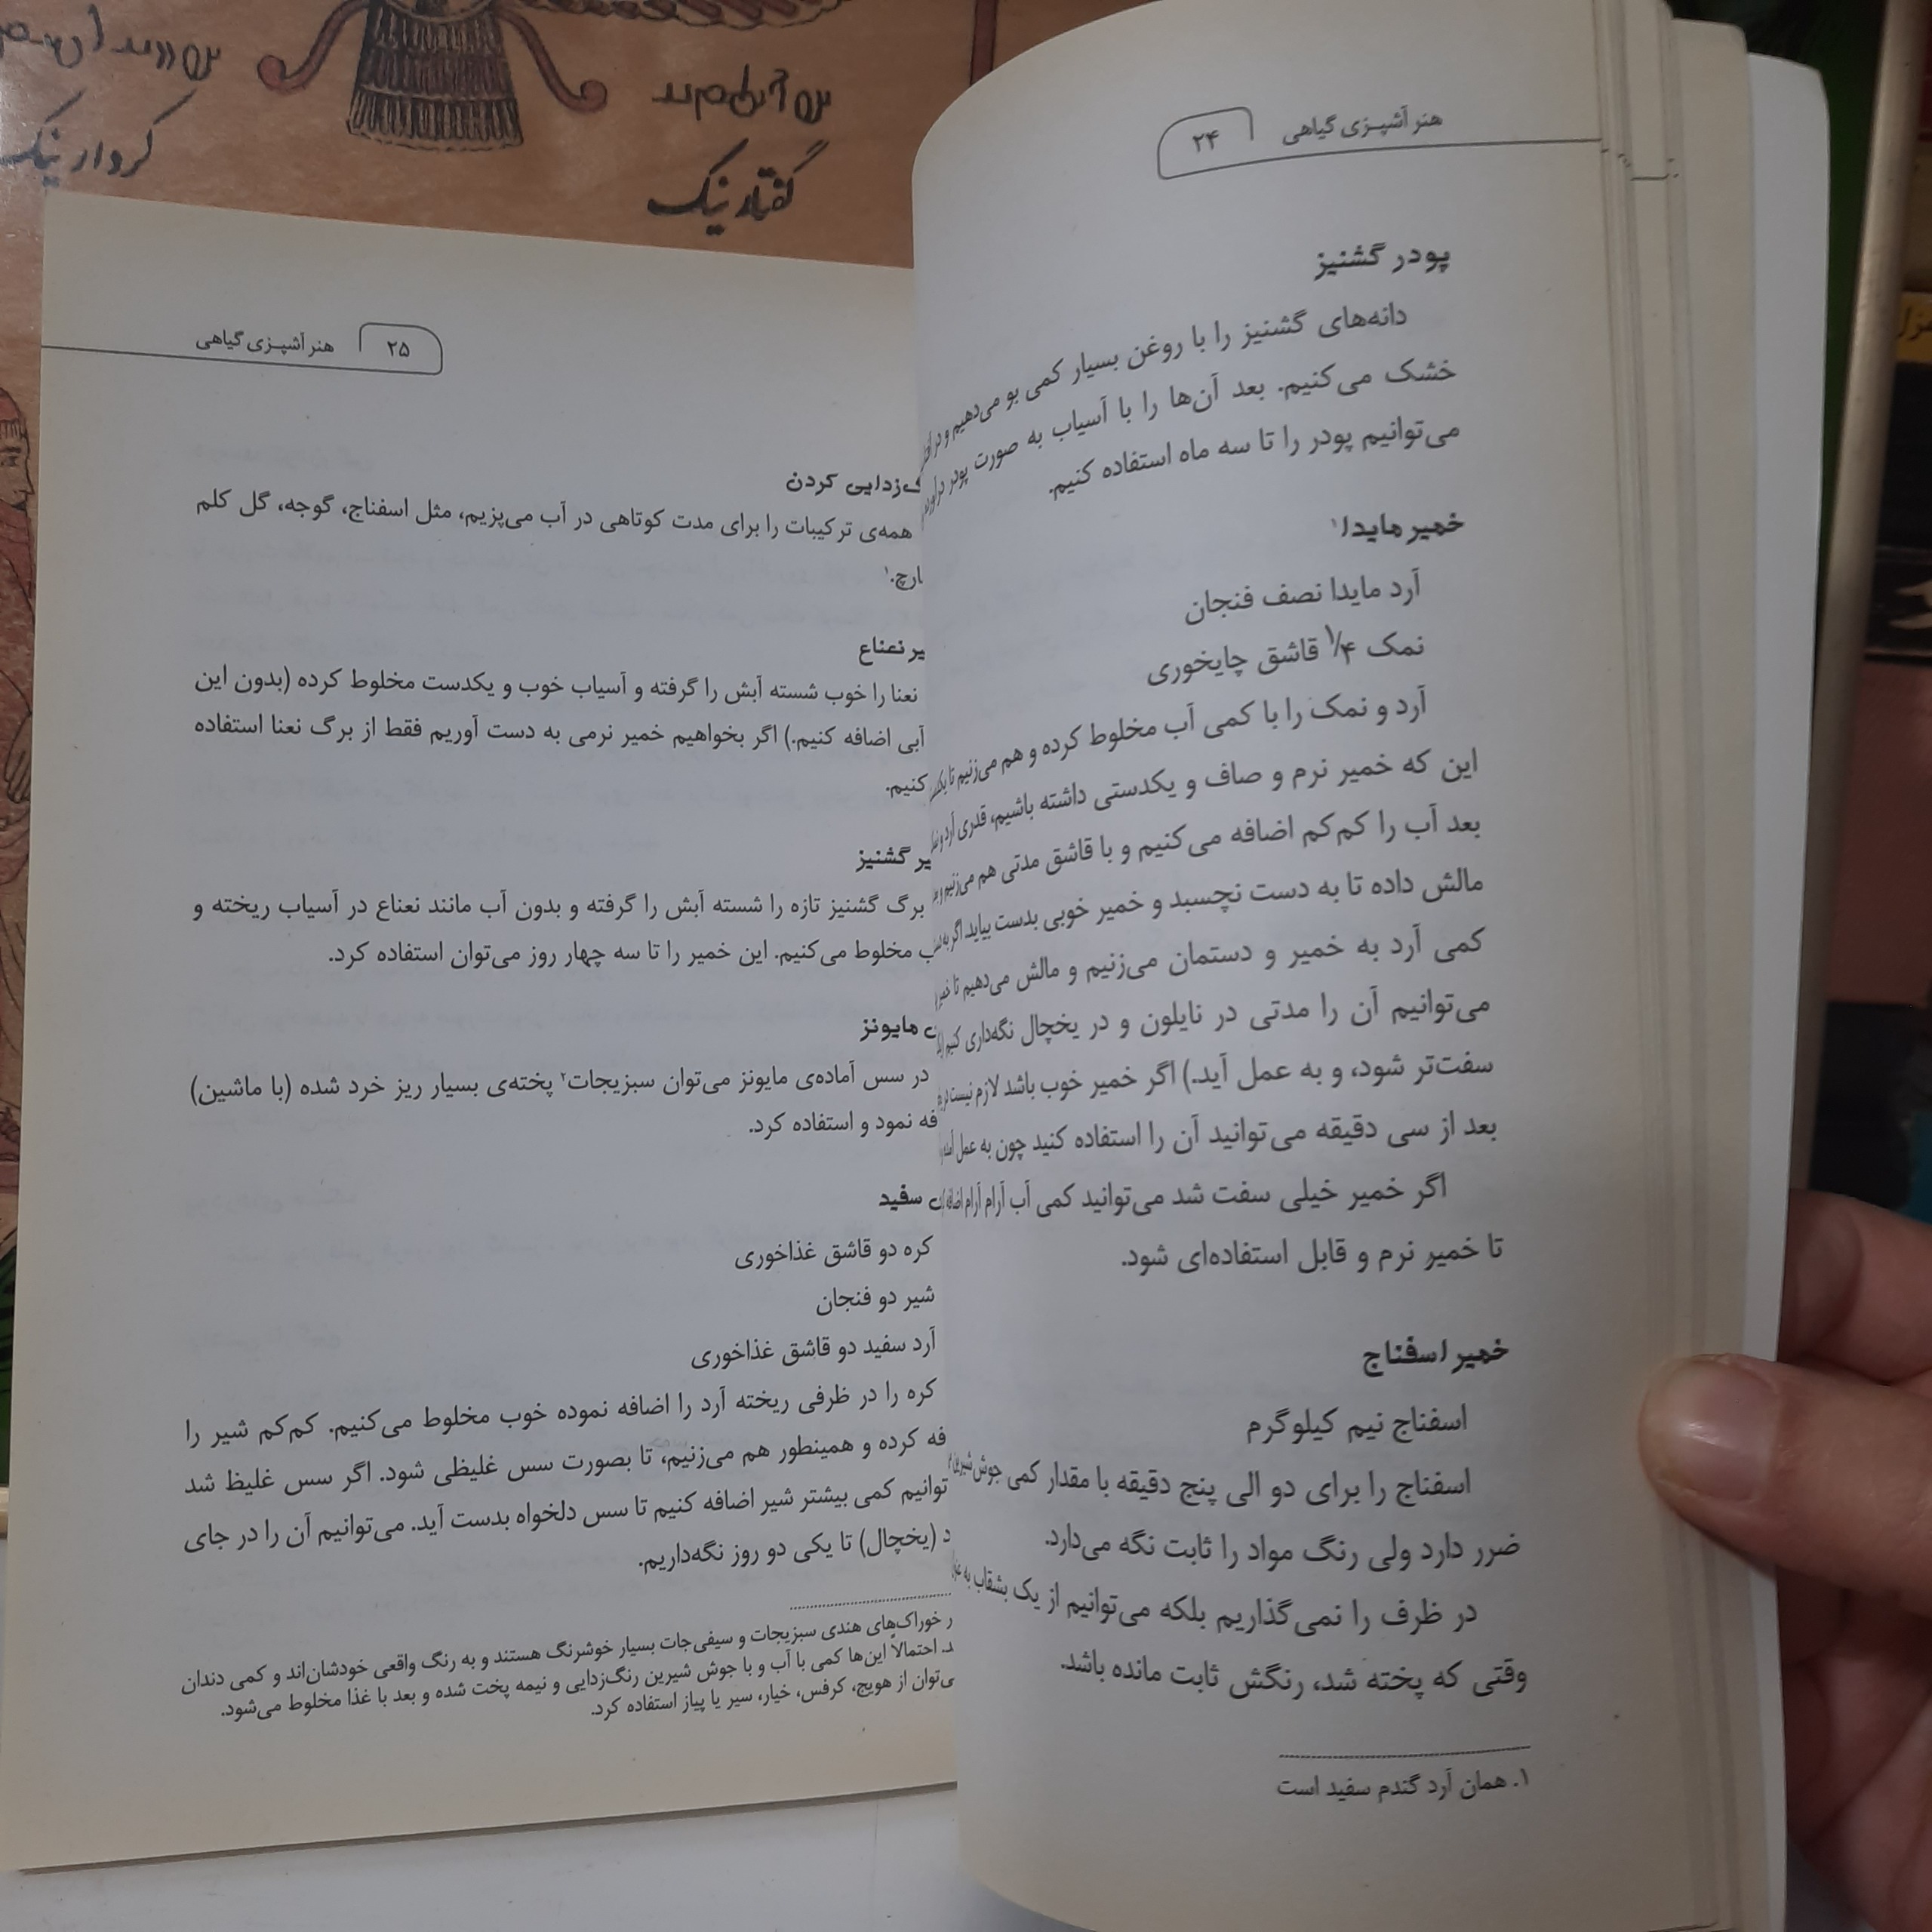 کردار نیک
گفتار نیک
هنر آشپزی گیاهی
۲۴
پودر گشنیز
دانه‌های گشنیز را با روغن بسیار کمی بو می‌دهیم و در
خشک می‌کنیم. بعد آن‌ها را با آسیاب به صورت پودر
می‌توانیم پودر را تا سه ماه استفاده کنیم.
خمیر مایدا۱
آرد مایدا نصف فنجان
نمک ۱/۴ قاشق چایخوری
آرد و نمک را با کمی آب مخلوط کرده و هم می‌زنیم تا
این که خمیر نرم و صاف و یکدستی داشته باشیم، قدری آرد و
بعد آب را کم‌کم اضافه می‌کنیم و با قاشق مدتی هم می‌زنیم و
مالش داده تا به دست نچسبد و خمیر خوبی بدست بیاید. اگر به
کمی آرد به خمیر و دستمان می‌زنیم و مالش می‌دهیم تا
می‌توانیم آن را مدتی در نایلون و در یخچال نگه‌داری کنیم
سفت‌تر شود، و به عمل آید.) اگر خمیر خوب باشد لازم نیست
بعد از سی دقیقه می‌توانید آن را استفاده کنید چون به عمل
اگر خمیر خیلی سفت شد می‌توانید کمی آب آرام آرام
تا خمیر نرم و قابل استفاده‌ای شود.
خمیر اسفناج
اسفناج نیم کیلوگرم
اسفناج را برای دو الی پنج دقیقه با مقدار کمی جوش شیرین
ضرر دارد ولی رنگ مواد را ثابت نگه می‌دارد.
در ظرف را نمی‌گذاریم بلکه می‌توانیم از یک بشقاب به
وقتی که پخته شد، رنگش ثابت مانده باشد.
۱. همان آرد گندم سفید است
۲۵
هنر آشپزی گیاهی
زدایی کردن
همه‌ی ترکیبات را برای مدت کوتاهی در آب می‌پزیم، مثل اسفناج، گوجه، گل کلم
ارچ.۱
یر نعناع
نعنا را خوب شسته آبش را گرفته و آسیاب خوب و یکدست مخلوط کرده (بدون این
آبی اضافه کنیم.) اگر بخواهیم خمیر نرمی به دست آوریم فقط از برگ نعنا استفاده
کنیم.
یر گشنیز
برگ گشنیز تازه را شسته آبش را گرفته و بدون آب مانند نعناع در آسیاب ریخته و
ب مخلوط می‌کنیم. این خمیر را تا سه چهار روز می‌توان استفاده کرد.
مایونز
در سس آماده‌ی مایونز می‌توان سبزیجات۲ پخته‌ی بسیار ریز خرد شده (با ماشین)
فه نمود و استفاده کرد.
سفید
کره دو قاشق غذاخوری
شیر دو فنجان
آرد سفید دو قاشق غذاخوری
کره را در ظرفی ریخته آرد را اضافه نموده خوب مخلوط می‌کنیم. کم‌کم شیر را
فه کرده و همینطور هم می‌زنیم، تا بصورت سس غلیظی شود. اگر سس غلیظ شد
توانیم کمی بیشتر شیر اضافه کنیم تا سس دلخواه بدست آید. می‌توانیم آن را در جای
د (یخچال) تا یکی دو روز نگه‌داریم.
ر خوراک‌های هندی سبزیجات و سیفی‌جات بسیار خوشرنگ هستند و به رنگ واقعی خودشان‌اند و کمی دندان
د. احتمالاً این‌ها کمی با آب و با جوش شیرین رنگ‌زدایی و نیمه پخت شده و بعد با غذا مخلوط می‌شود.
ی‌توان از هویج، کرفس، خیار، سیر یا پیاز استفاده کرد.